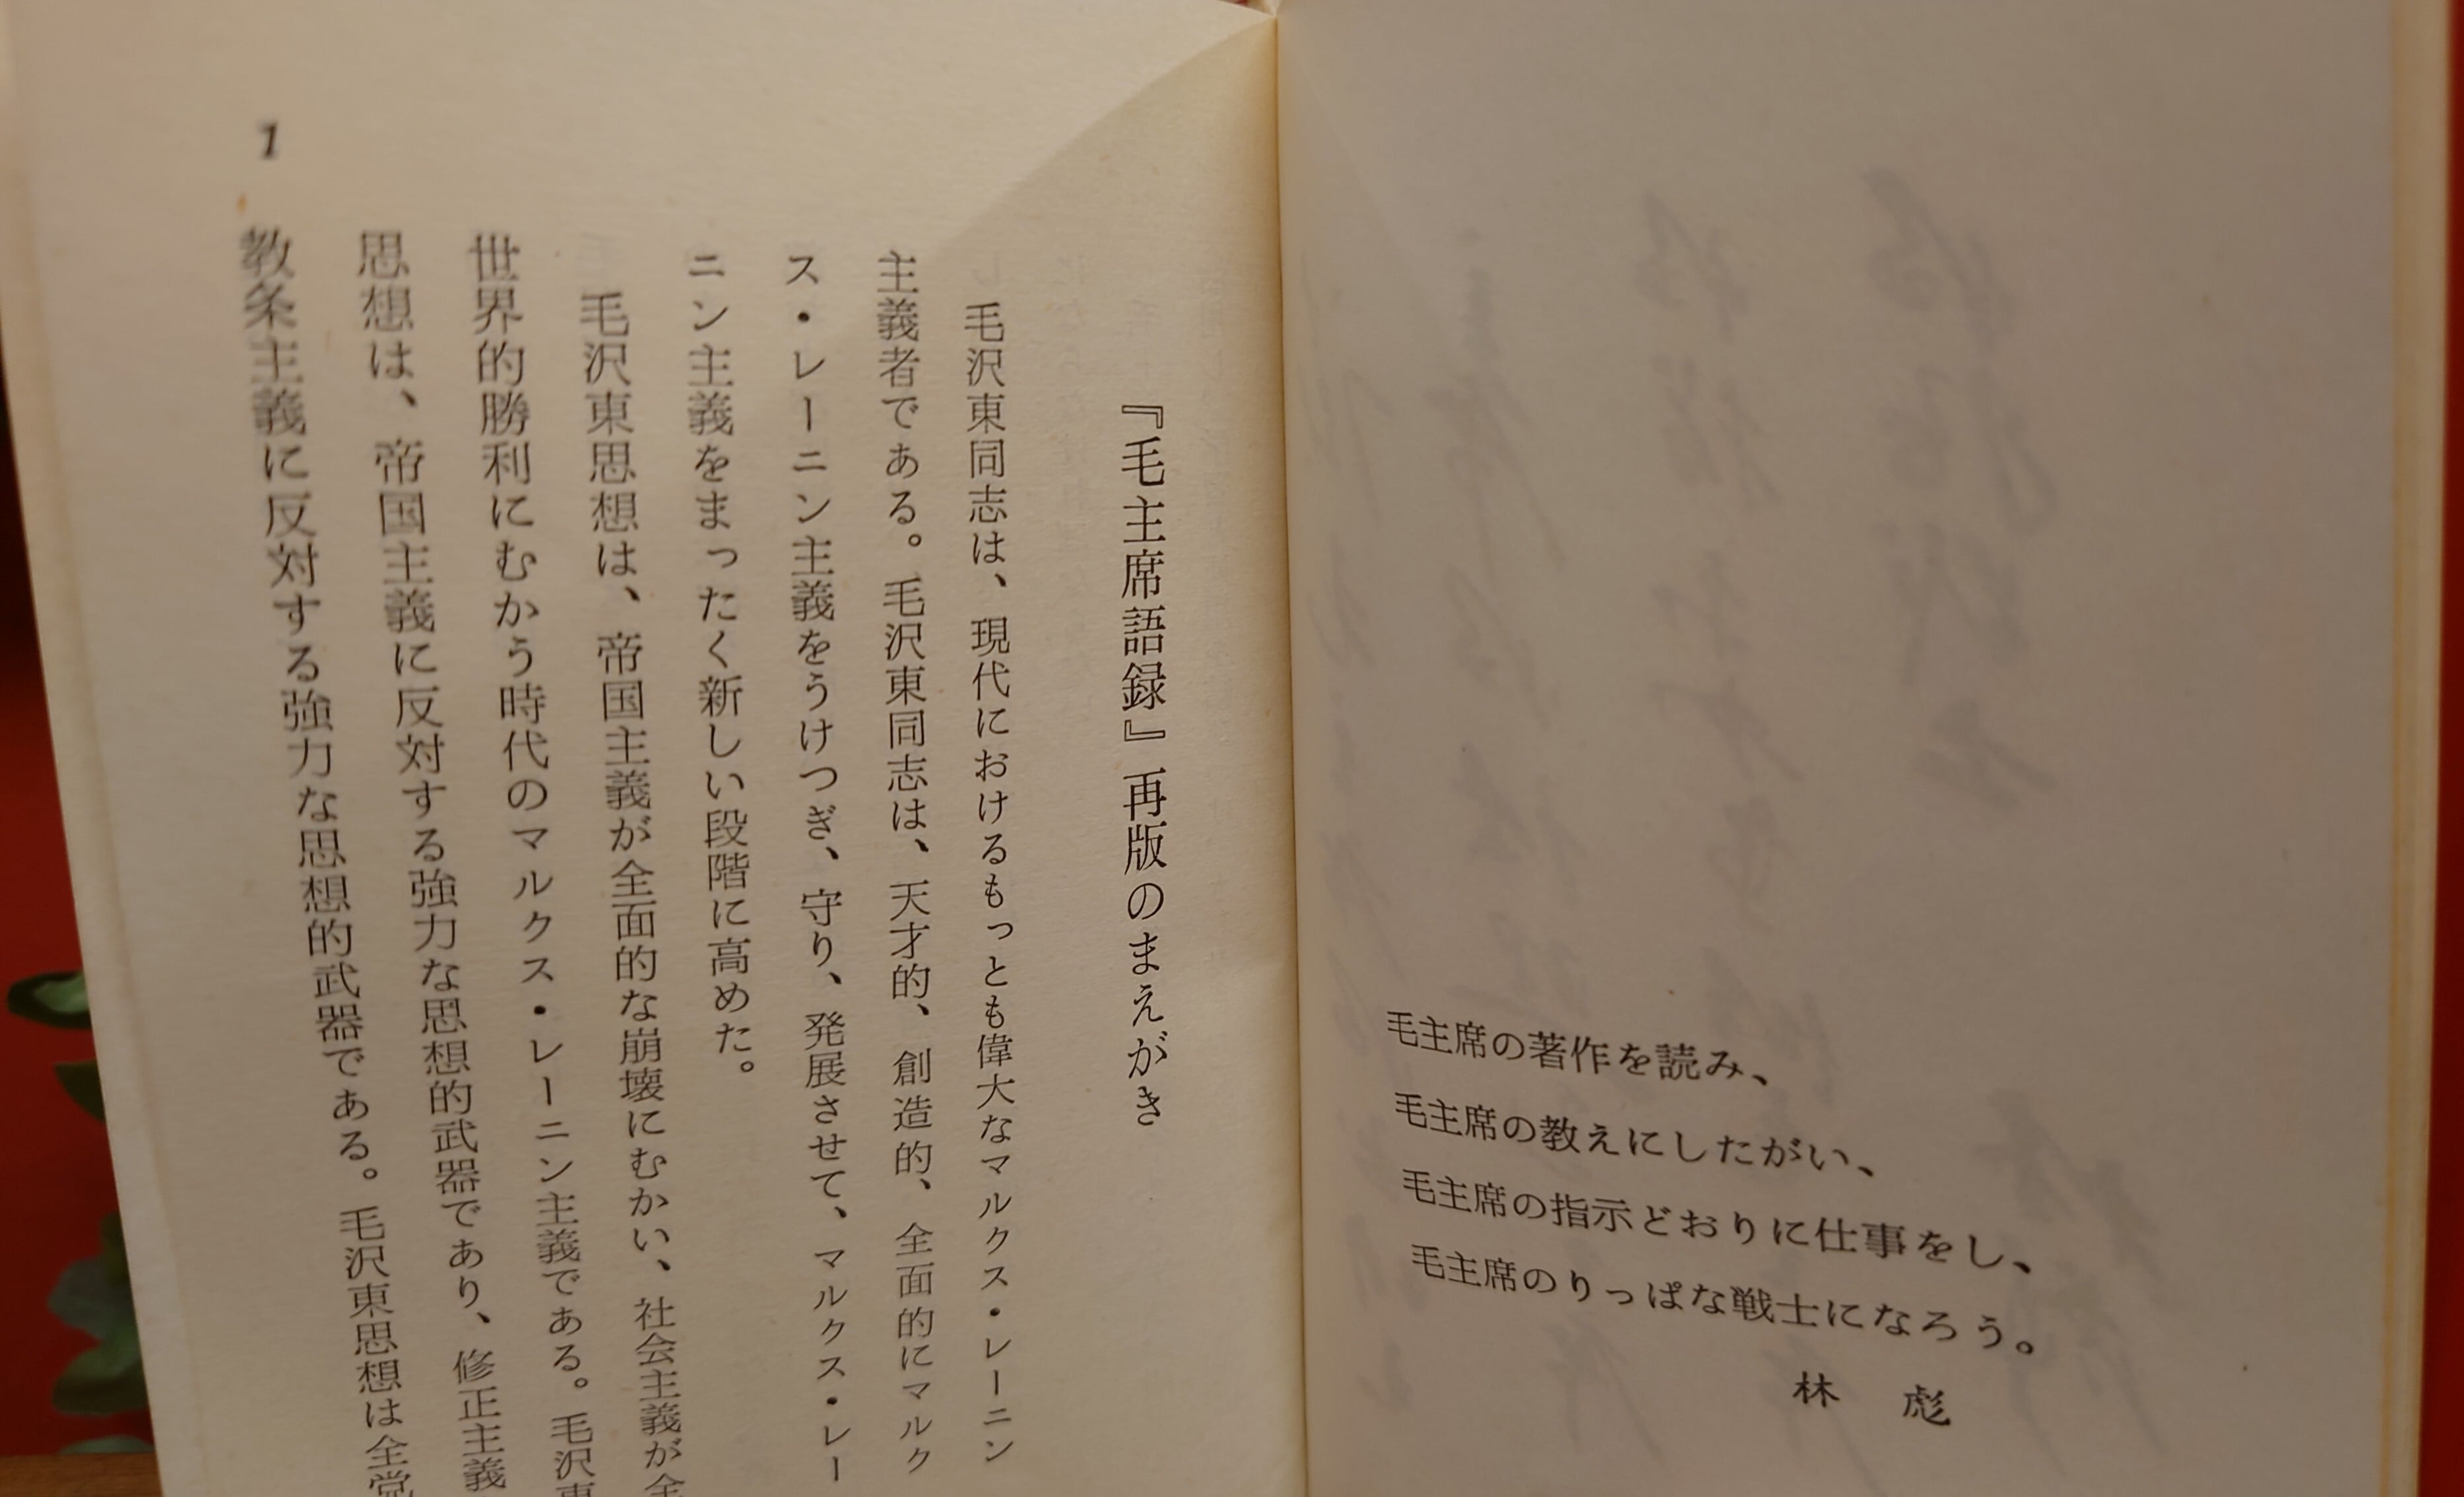 毛主席の著作を読み、
毛主席の教えにしたがい、
毛主席の指示どおりに仕事をし、
毛主席のりっぱな戦士になろう。
林 彪
『毛主席語録』再版のまえがき
毛沢東同志は、現代におけるもっとも偉大なマルクス・レーニン
主義者である。毛沢東同志は、天才的、創造的、全面的にマルク
ス・レーニン主義をうけつぎ、守り、発展させて、マルクス・レー
ニン主義をまったく新しい段階に高めた。
毛沢東思想は、帝国主義が全面的な崩壊にむかい、社会主義が全
世界的勝利にむかう時代のマルクス・レーニン主義である。毛沢東
思想は、帝国主義に反対する強力な思想的武器であり、修正主義
教条主義に反対する強力な思想的武器である。毛沢東思想は全党
1